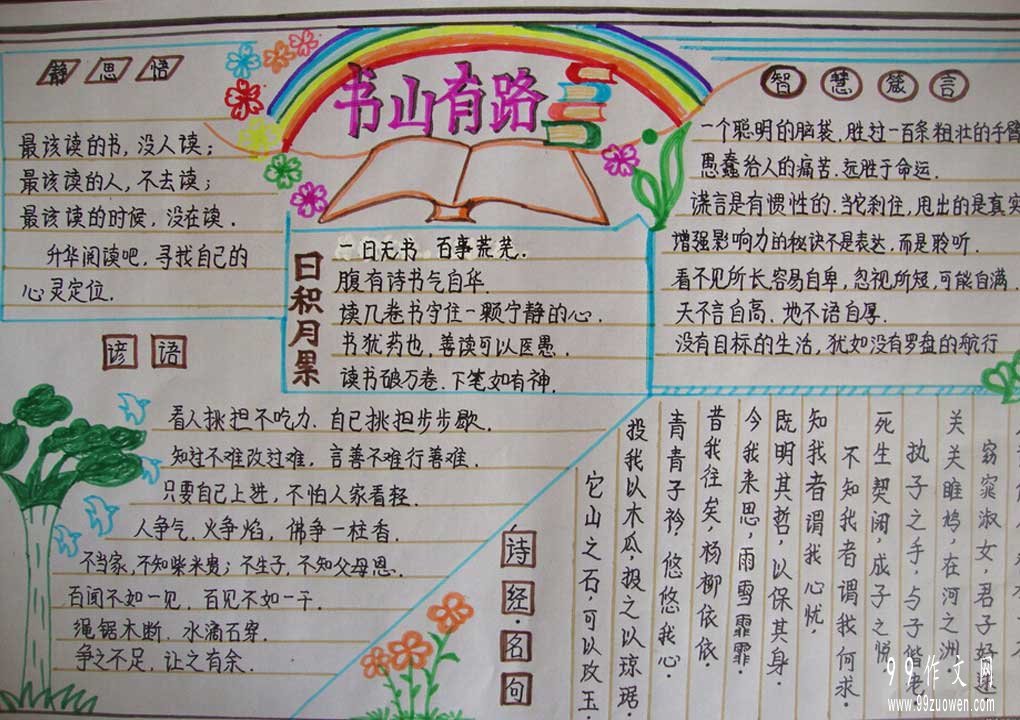 书山有路
静思悟
最该读的书,没人读;
最该读的人,不去读;
最该读的时候,没在读.
升华阅读吧,寻找自己的
心灵定位.
日积月果
一日无书 百事荒芜.
腹有诗书气自华.
读几卷书守住一颗宁静的心.
书犹药也,善读可以医愚.
读书破万卷.下笔如有神.
智慧箴言
一个聪明的脑袋,胜过一百条粗壮的手臂
愚蠢给人的痛苦.远胜于命运.
谎言是有惯性的.当它刹住,甩出的是真实
增强影响力的秘诀不是表达,而是聆听.
看不见所长.容易自卑,忽视所短,可能自满.
天不言自高.地不语自厚.
没有目标的生活,犹如没有罗盘的航行
谚语
看人挑担不吃力.自己挑担步步歇.
知过不难改过难,言善不难行善难.
只要自己上进,不怕人家看轻.
人争气.火争焰,佛争一柱香.
不当家,不知柴米贵;不生子,不知父母恩.
百闻不如一见,百见不如一干.
绳锯木断.水滴石穿.
争之不足,让之有余.
诗经·名句
它山之石,可以攻玉.
投我以木瓜.投之以琼琚.
青青子衿,悠悠我心.
昔我往矣,杨柳依依.
今我来思,雨雪霏霏.
既明其哲,以保其身.
知我者谓我心忧,
不知我者谓我何求.
死生契阔,成子之悦
执子之手,与子偕老
关关雎鸠,在河之洲
窈窕淑女,君子好逑
99作文网
www.99zuowen.com